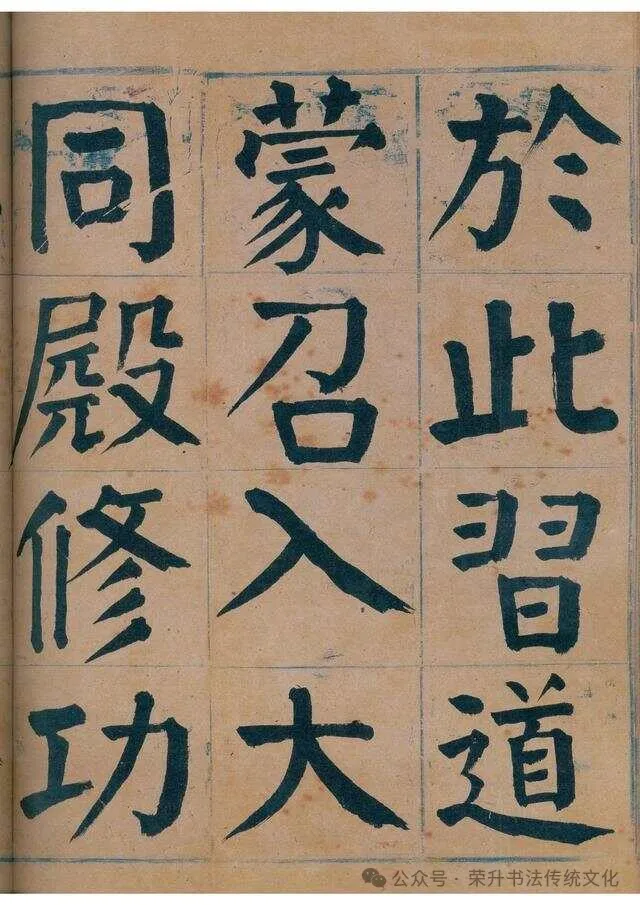 於此習道
蒙召入大
同殿修功
公众号·荣升书法传统文化